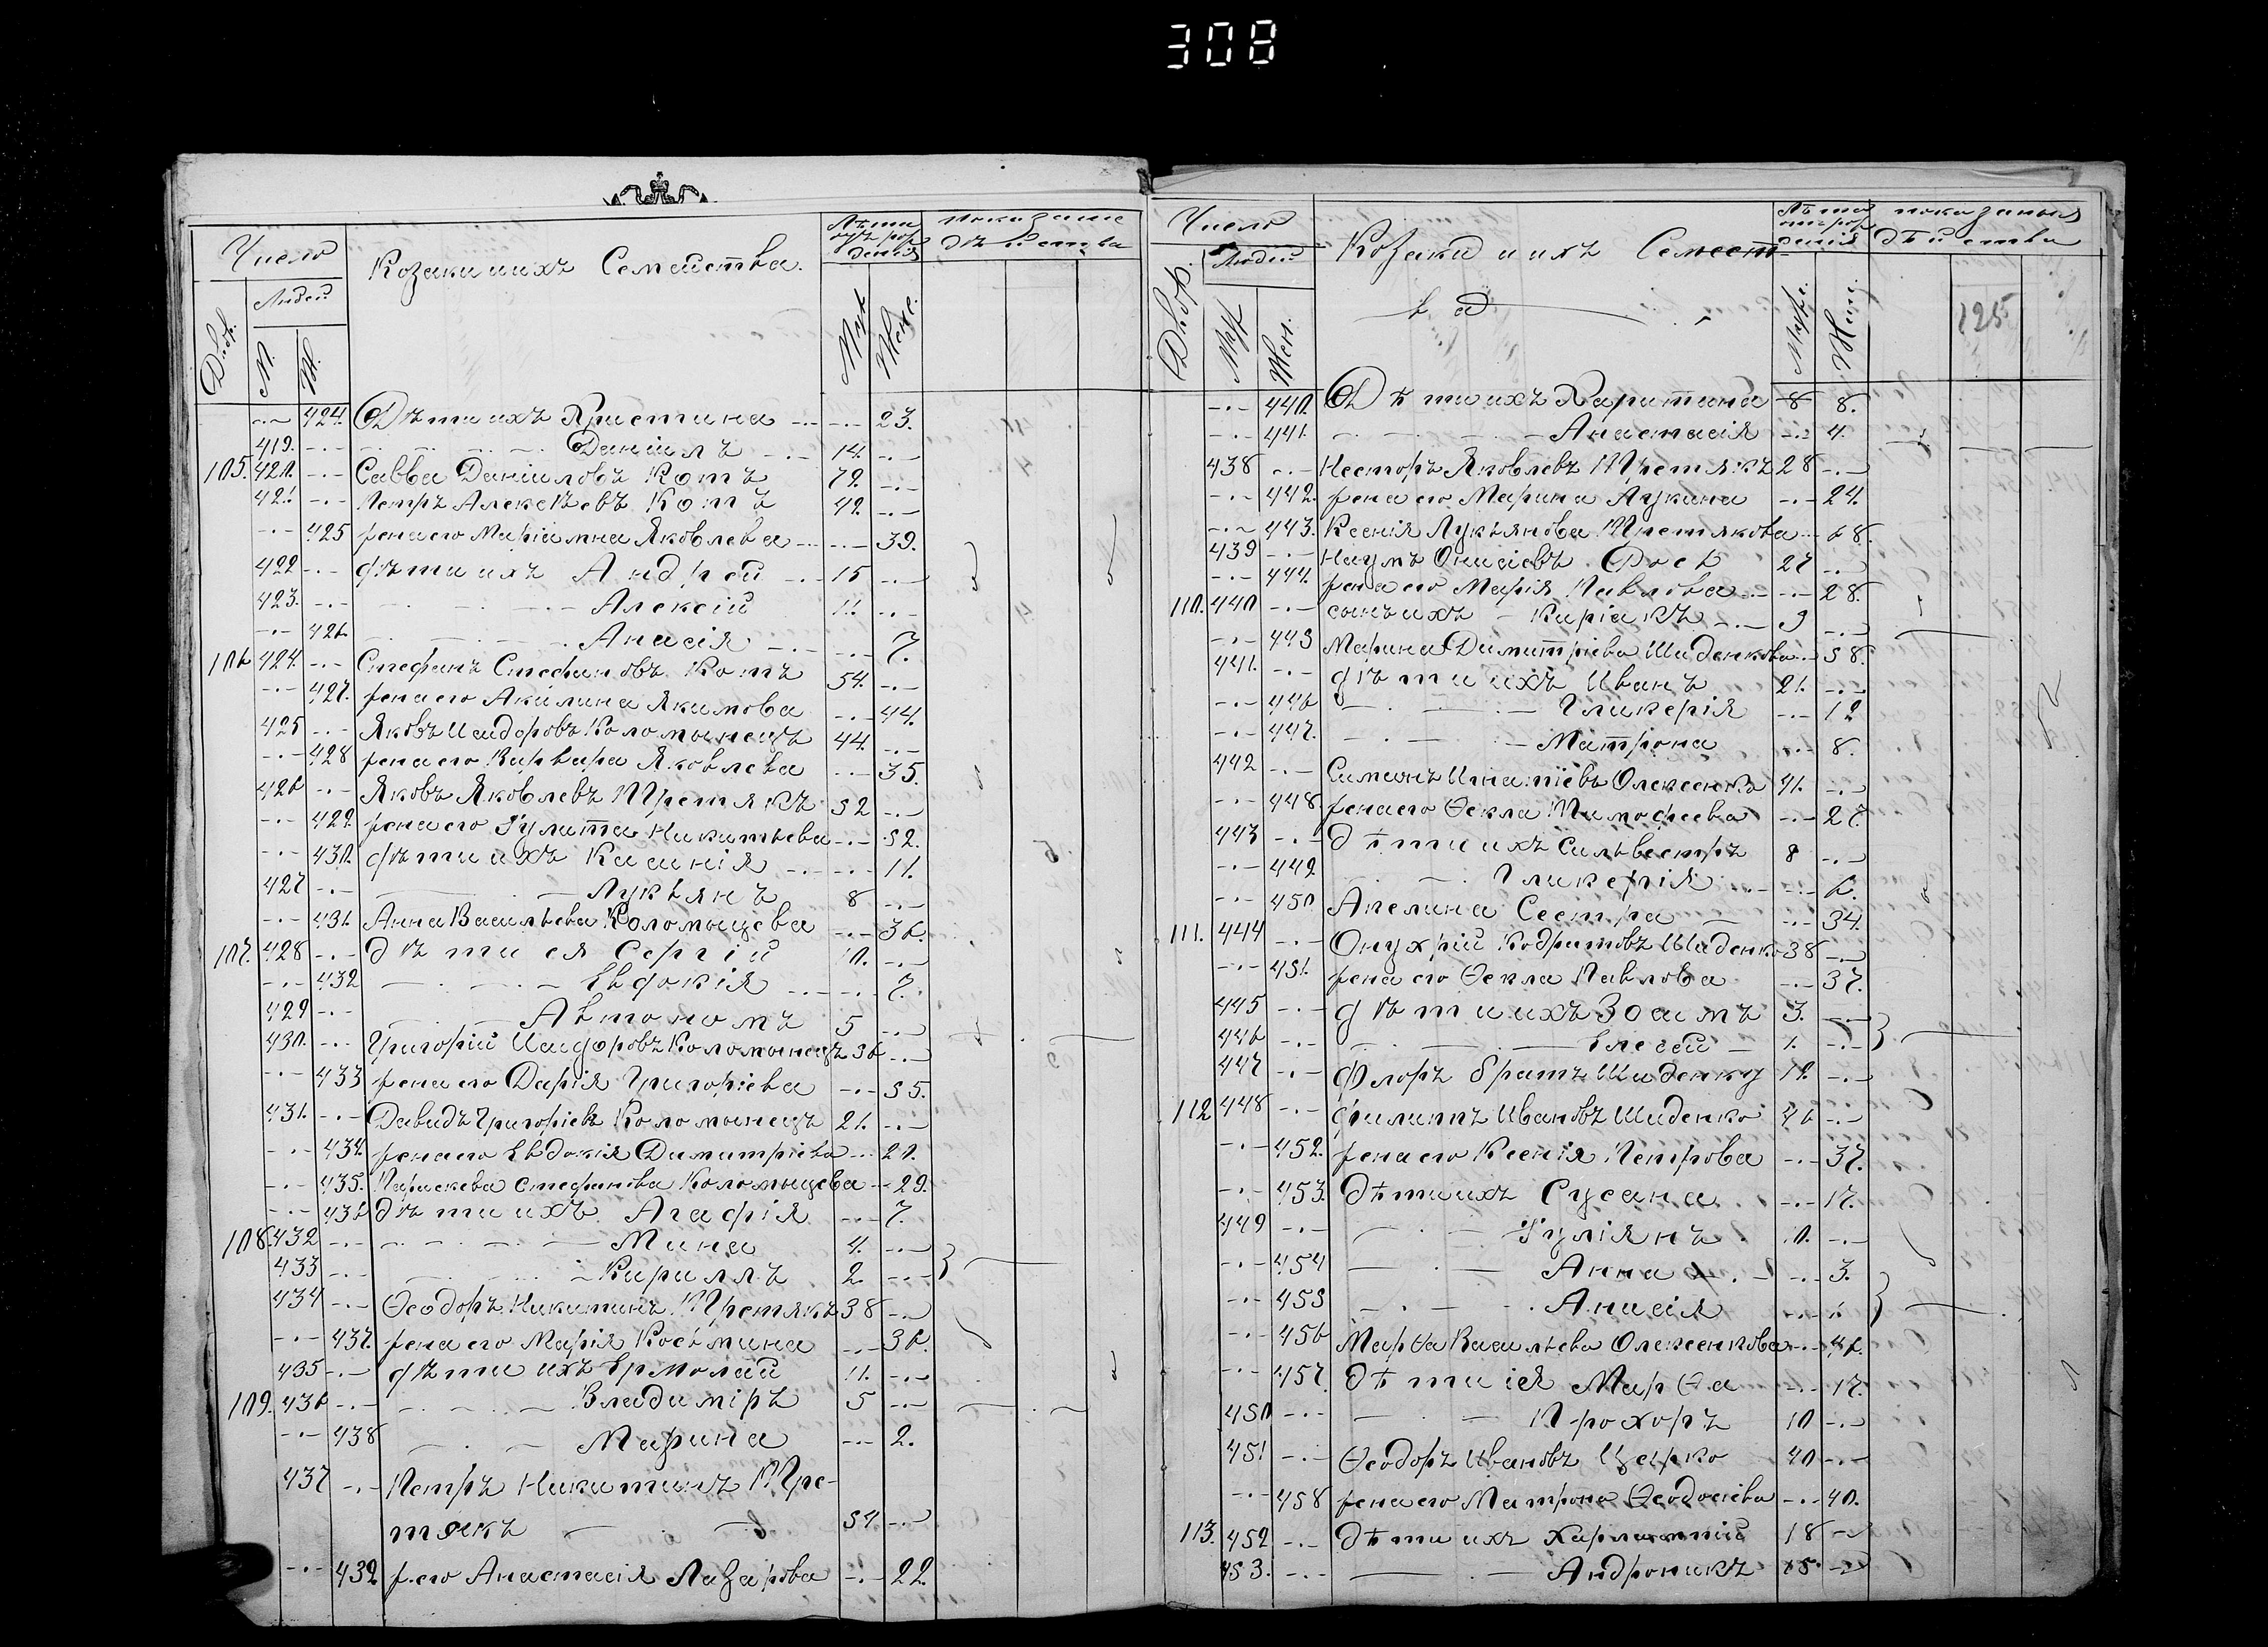 308
Число
Козаки и ихъ Семейства.
Лѣта отъ рождения
показание дѣйства
Людей
Двор.
М.
Ж.
Муж
Женс.
-.- 424. Дѣти ихъ Христина -.- 23.
419. -.- Даніилъ 14. -.-
105. 420. -.- Савва Даніиловъ Котъ 72. -.-
421 -.- Петръ Алексѣевъ Котъ 42. -.-
-.- 425 жена его Маріамна Яковлева -.- 39.
422 -.- дѣти ихъ Андрей 15 -.-
423. -.- Алексій 11. -.-
-.- 426 Анасія -.- 7.
106 424. -.- Стефанъ Стефановъ Котъ 54. -.-
-.- 427. жена его Акилина Якимова -.- 44.
425 -.- Яковъ Исидоровъ Коломыецъ 44. -.-
-.- 428 жена его Варвара Яковлева -.- 35.
426 -.- Яковъ Яковлевъ Третякъ 52 -.-
-.- 429. жена его Гулитта Никитьева -.- 52.
-.- 430. дѣти ихъ Кисинія -.- 11.
427 -.- Лукьянъ 8 -.-
-.- 431. Анна Васильева Коломыцева -.- 36.
107. 428 -.- дѣти ея Сергій 10. -.-
-.- 432 Евфокія -.- 7.
429 -.- Автономъ 5 -.-
430. -.- Григорій Исидоровъ Коломыецъ 56 -.-
-.- 433 жена его Дарія Григоріева -.- 55.
431. -.- Давидъ Григоріевъ Коломыецъ 21. -.-
-.- 434. жена его Евдокія Димитріева -.- 20.
-.- 435. Параскева Стефанова Коломыцева -.- 29.
-.- 436 дѣти ихъ Агафія -.- 7.
108. 432 -.- Мина 4. -.-
433 -.- Кириллъ 2. -.-
434 -.- Ѳеодоръ Никитинъ Третякъ 38 -.-
-.- 437. жена его Марія Косьмина -.- 36.
435 -.- дѣти ихъ Ермолай 11. -.-
109. 436 -.- Владиміръ 5 -.-
-.- 438 Марина -.- 2.
437 -.- Петръ Никитинъ Тре-
тякъ 34 -.-
-.- 439. ж. его Анастасія Лазарова -.- 22.
Число
Козаки и ихъ Семейст-
ва
Лѣта отъ рождения
показания дѣйства
Людей
Двор.
Муж
Жен.
Мужс.
Жен.
125
-.- 440. Дѣти ихъ Харитина 8 8.
-.- 441. Анастасія -.- 4.
438 -.- Несторъ Яковлевъ Третякъ 28 -.-
-.- 442. жена его Марина Лукина -.- 24.
-.- 443. Ксенія Лукьянова Третякова -.- 68.
439 -.- Наумъ Онисіевъ 27 -.-
-.- 444. жена его Марія Павлова -.- 28.
110. 440 -.- сынъ ихъ Киріакъ 9 -.-
-.- 445 Марина Димитріева Шиденкова -.- 58.
441. -.- дѣти ихъ Иванъ 21. -.-
-.- 446 Гликерія -.- 12
-.- 447. Матрона -.- 8.
442 -.- Симонъ Игнатіевъ Олексенко 41. -.-
-.- 448. жена его Ѳекла Тимофеева -.- 27.
443 -.- Дѣти ихъ Сильвестръ 8 -.-
-.- 449. Гликерія -.- 6.
-.- 450 Ангелина Сестра -.- 34.
111. 444 -.- Онуфрій Кодратовъ Шиденко 38 -.-
-.- 451. жена его Ѳекла Павлова -.- 37.
445 -.- дѣти ихъ Зосимъ 3. -.-
446 -.- Елесей 1. -.-
447 -.- Флоръ братъ Шиденку 19. -.-
112 448 -.- Филиппъ Ивановъ Шиденко 46 -.-
-.- 452. жена его Ксенія Петрова -.- 37.
-.- 453. Дѣти ихъ Сусана -.- 17.
449 -.- Гуліянъ 10. -.-
-.- 454 Анна -.- 3.
-.- 455 Анисія -.- 1.
-.- 456 Марѳа Васильева Олексенкова -.- 46.
-.- 457. Дѣти ея Марѳа -.- 17.
450 -.- Прохоръ 10 -.-
451 -.- Ѳеодоръ Ивановъ 40 -.-
-.- 458 жена его Матрона Ѳеодосіева -.- 40.
113. 452 -.- Дѣти ихъ Харлампій 18 -.-
453. -.- Андроникъ 15. -.-